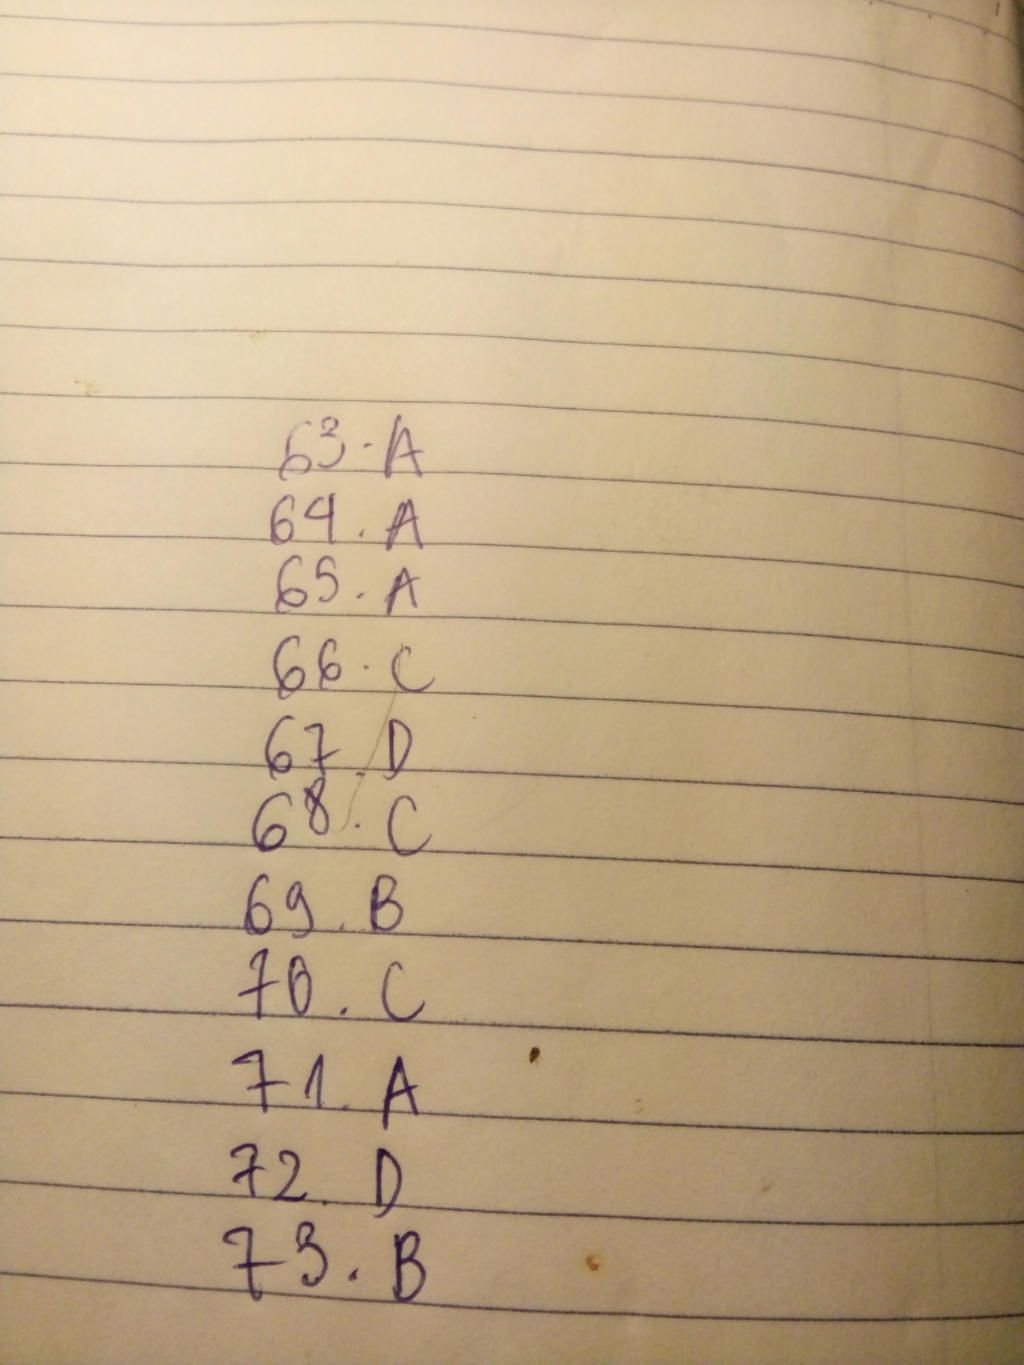 63. A
64. A
65. A
66. C
67. D
68. C
69. B
70. C
71. A
72. D
73. B